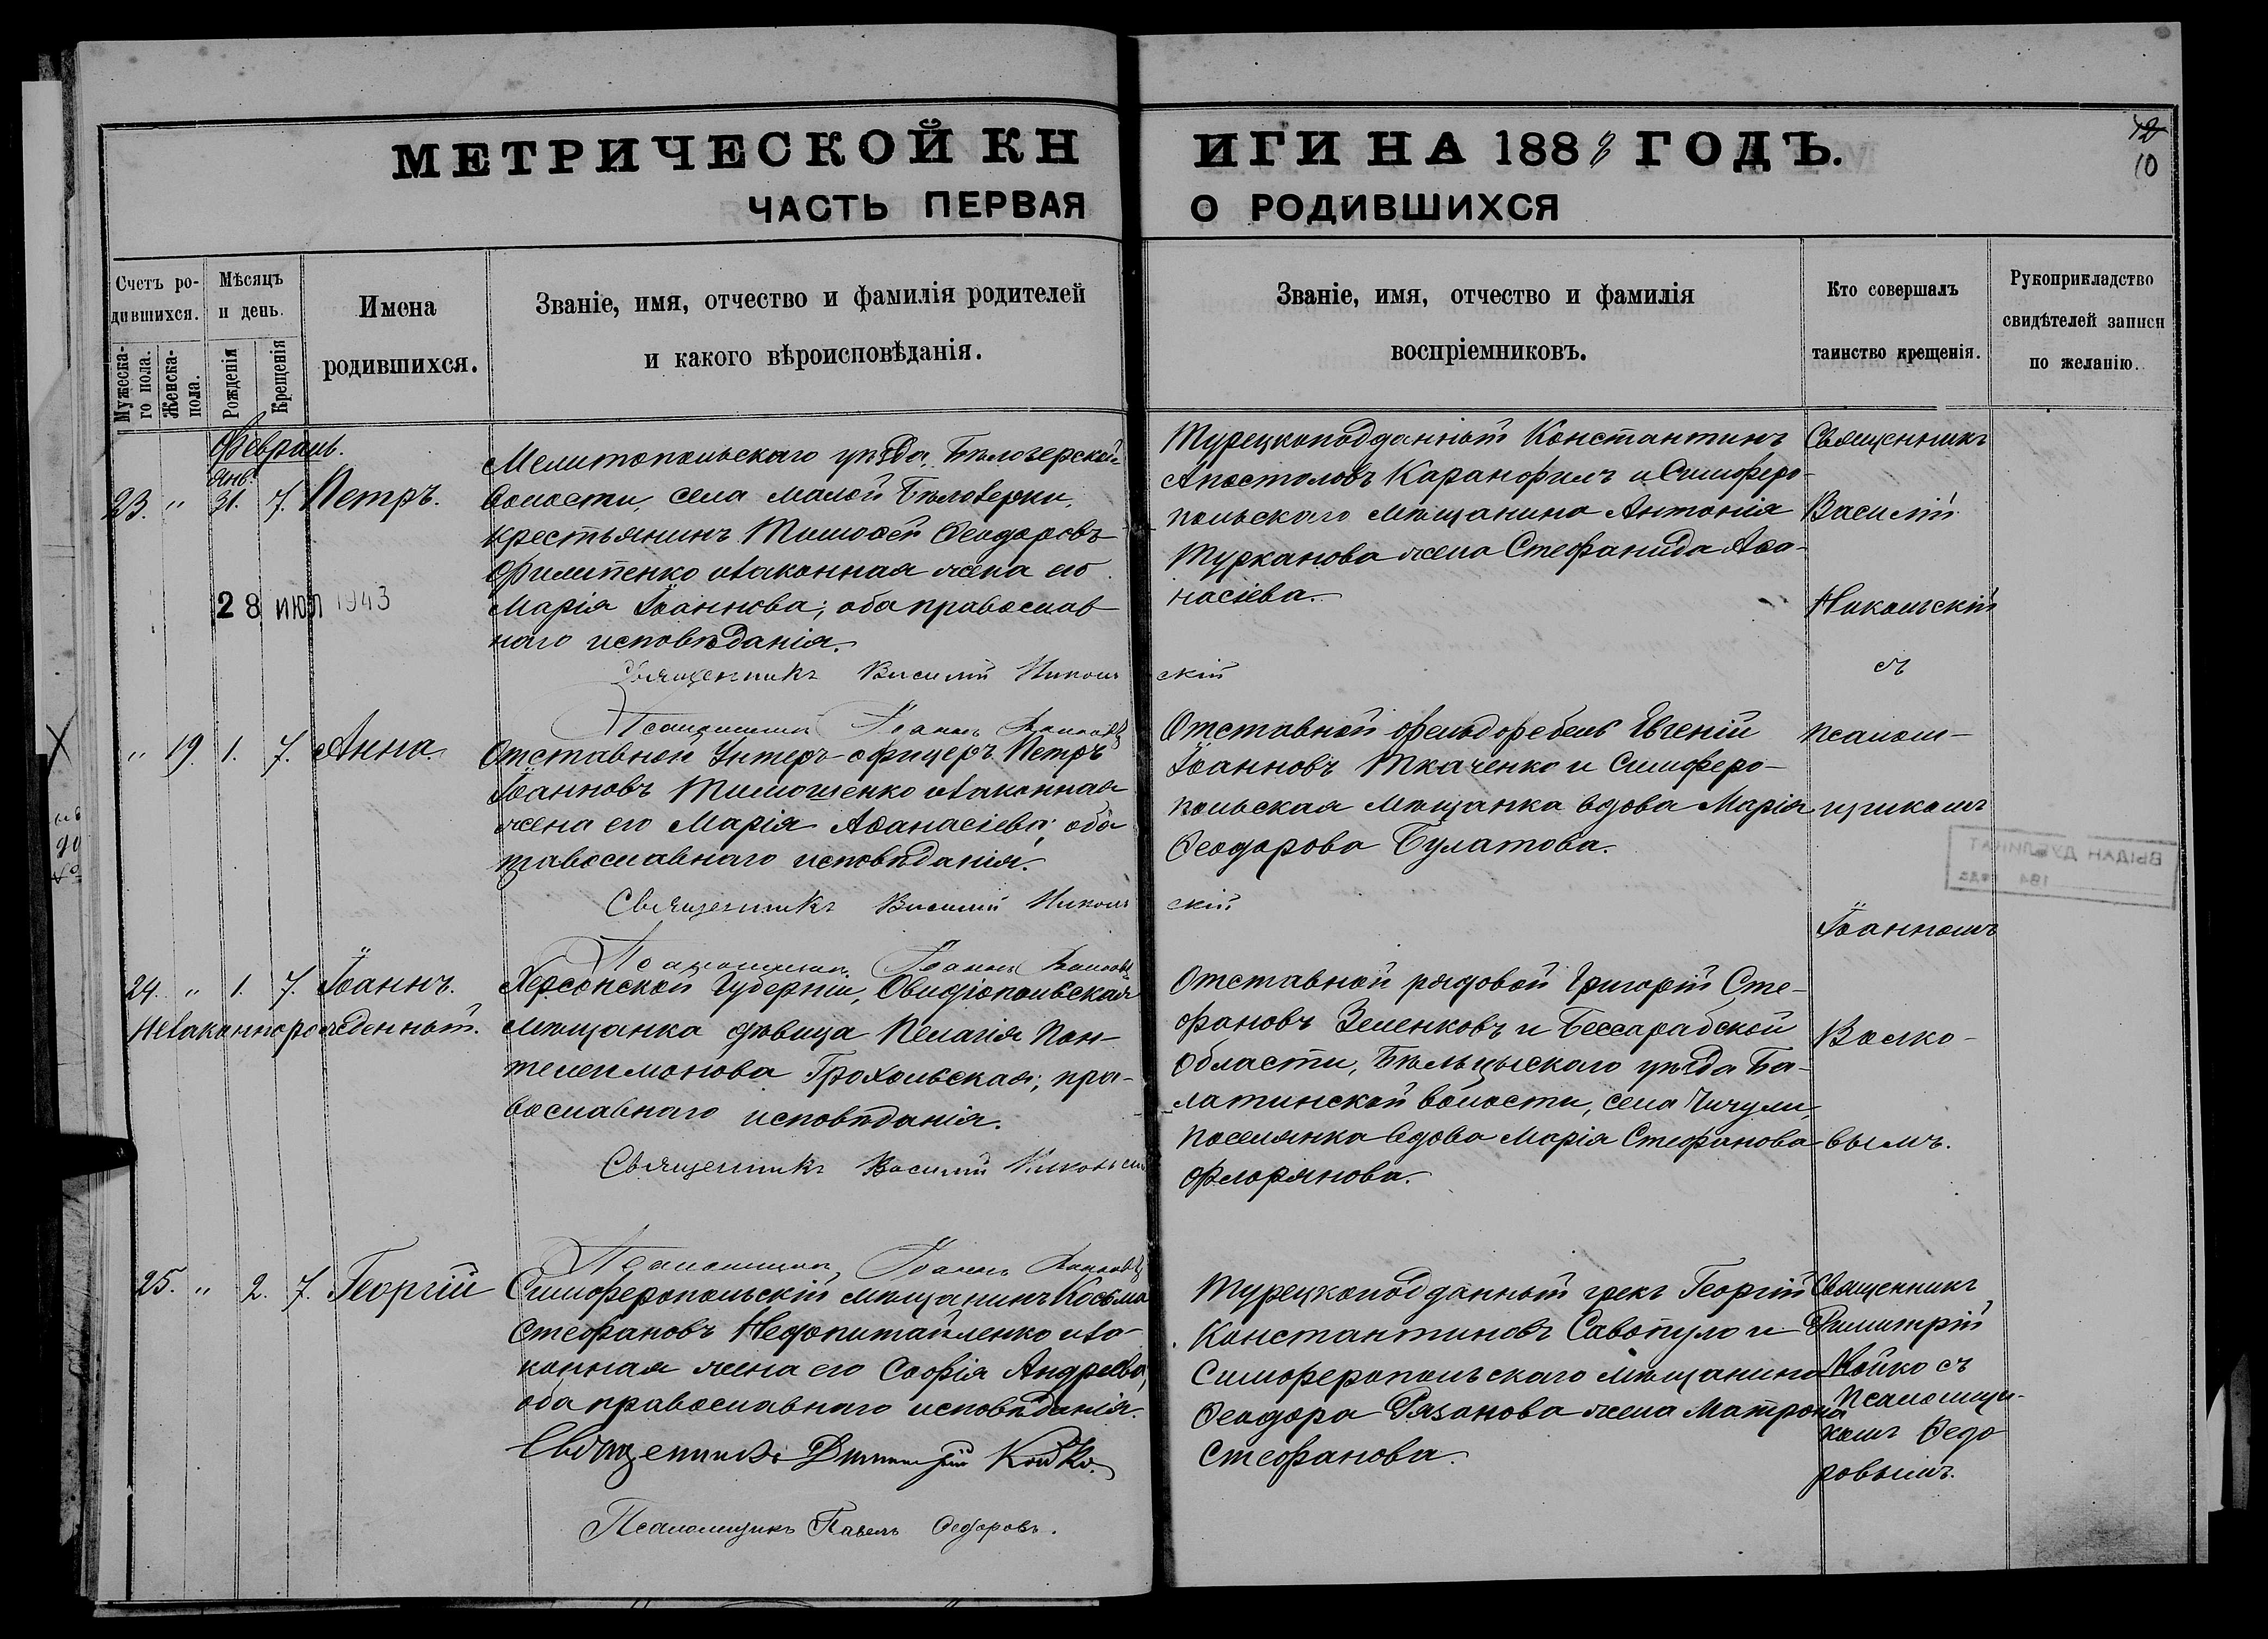 МЕТРИЧЕСКОЙ КНИГИ НА 1888 ГОДЪ.
12
10
ЧАСТЬ ПЕРВАЯ О РОДИВШИХСЯ
Счетъ ро-
дившихся.
Мужеска-
го пола.
Женска-
пола.
Мѣсяцъ
и день.
Рожденія
Крещенія
Имена
родившихся.
Званіе, имя, отчество и фамилія родителей
и какого вѣроисповѣданія.
Званіе, имя, отчество и фамилія
воспріемниковъ.
Кто совершалъ
таинство крещенія.
Рукоприкладство
свидѣтелей записи
по желанію.
Февраль.
Янв.
23. " 31. 7. Петръ.
Мелитопольскаго уѣзда, Бѣлозерской
волости, села Малой Бѣлозерки,
крестьянинъ Тимоѳей Ѳеодоровъ
Филипенко и законная жена его
Марія Іоаннова; оба православ
наго исповѣданія.
Священникъ Василій Николь
скій
Псаломщикъ Іоаннъ
Турецкоподданный Константинъ
Апостоловъ Каранфилъ и Симферо-
польскаго мѣщанина Антонія
Турканова жена Стефанида Аѳа-
насіева.
Священникъ
Василій
Никольскій
съ
псалом-
щикомъ
Іоанномъ
Волко-
вымъ.
28 ИЮЛ 1943
" 19. 1. 7. Анна.
Отставной Унтеръ-офицеръ Петръ
Іоанновъ Тимошенко и законная
жена его Марія Аѳанасіева; оба
православнаго исповѣданія.
Священникъ Василій Николь
скій
Псаломщикъ Іоаннъ
Отставной фельдфебель Евгеній
Іоанновъ Ткаченко и Симферо-
польская мѣщанка вдова Марія
Ѳеодорова Булатова.
ВЫДАН ДУБЛИКАТ
194 года
24. " 1. 7. Іоаннъ.
Незаконнорожденный.
Херсонской Губерніи, Овидіопольская
мѣщанка дѣвица Пелагія Пан-
телеимонова Грохольская; пра-
вославнаго исповѣданія.
Священникъ Василій Никольскій
Псаломщикъ Іоаннъ
Отставной рядовой Григорій Сте-
фановъ Зеленковъ и Бессарабской
области, Бѣльцыскаго уѣзда Ба-
латинской волости, села Чучули,
поселянка вдова Марія Стефанова
Флорянова.
25. " 2. 7. Георгій
Симферопольскій мѣщанинъ Косьма
Стефановъ Недопитайленко и за-
конная жена его Софія Андреева,
оба православнаго исповѣданія.
Священникъ Димитрій Койко.
Псаломщикъ Павелъ Ѳедоровъ.
Турецкоподданный грекъ Георгій
Константиновъ Савопуло и
Симферопольскаго мѣщанина
Ѳеодора Рязанова жена Матрона
Стефанова.
Священникъ
Димитрій
Койко съ
псаломщи-
комъ Ѳедо
ровымъ.